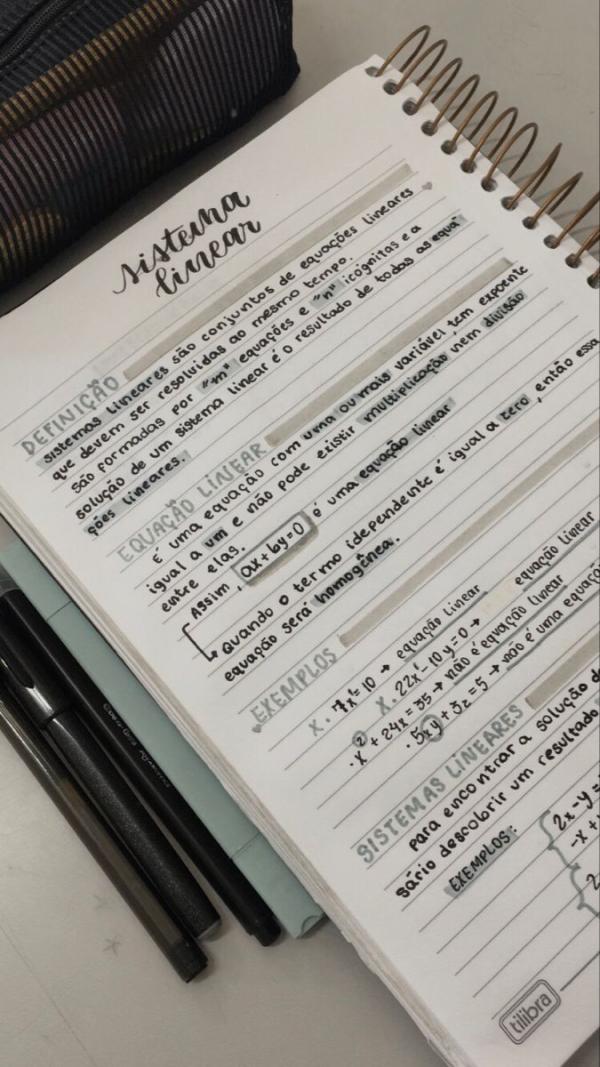 sistema
linear
DEFINIÇÃO
sistemas lineares são conjuntos de equações lineares
que devem ser resolvidas ao mesmo tempo.
são formadas por "m" equações e "n" icógnitas e a
solução de um sistema linear é o resultado de todas as equa-
ções lineares.
EQUAÇÃO LINEAR
é uma equação com uma ou mais variável tem expoente
igual a um e não pode existir multiplicação nem divisão
entre elas.
Assim, ax+by=0 é uma equação linear
Quando o termo idependente é igual a zero, então essa
equação será homogênea.
EXEMPLOS
x • 7x¹=10 → equação linear
x • 22x¹-10y=0 → equação linear
• x² + 24x = 35 → não é equação linear
• 5xy + 3z = 5 → não é uma equaçã
SISTEMAS LINEARES
para encontrar a solução d
sário descobrir um resultado
EXEMPLOS:
2x-y=
-x+
2
tilibra